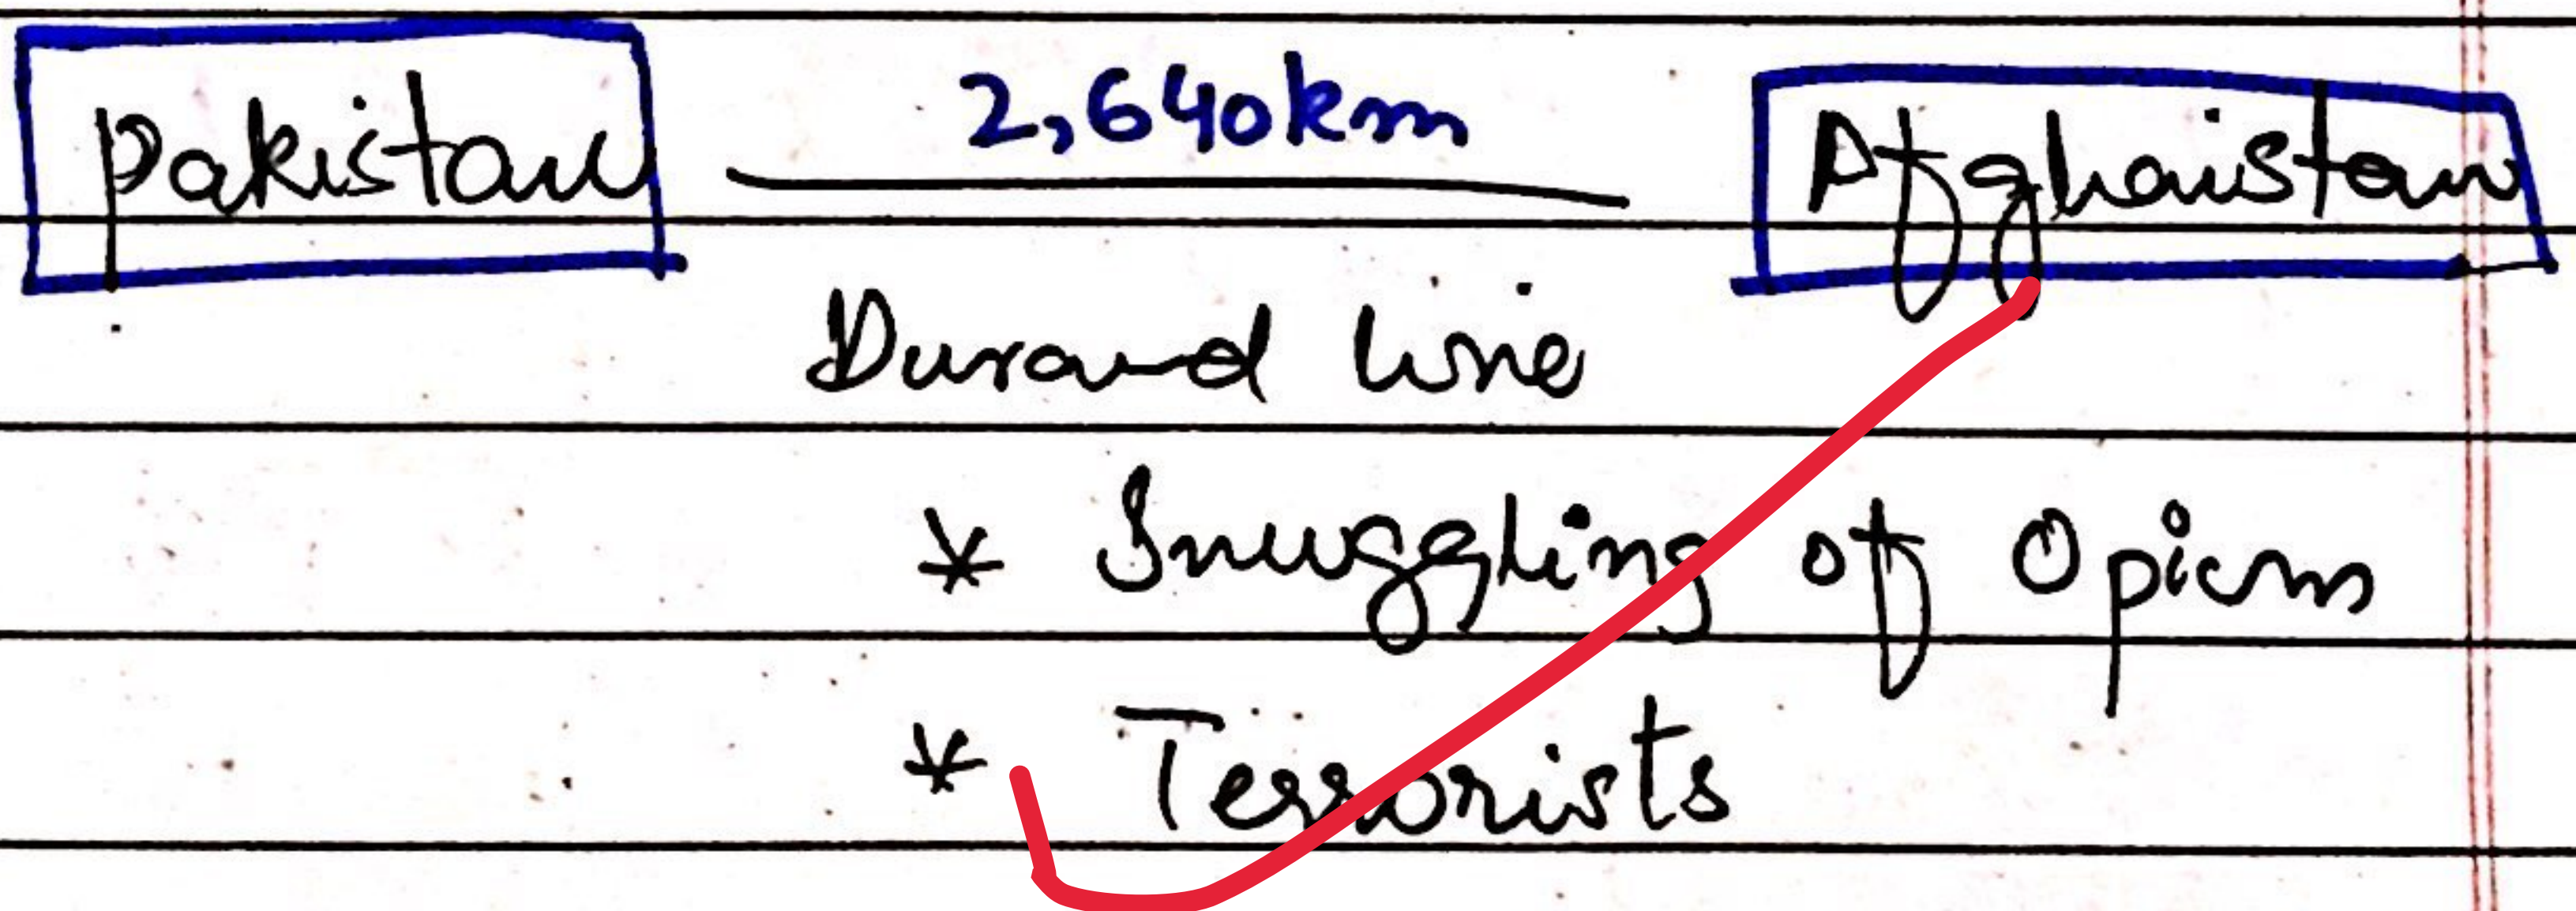 Pakistan 2,640km Afghaistan
Durand line
* Smuggling of Opium
* Terrorists